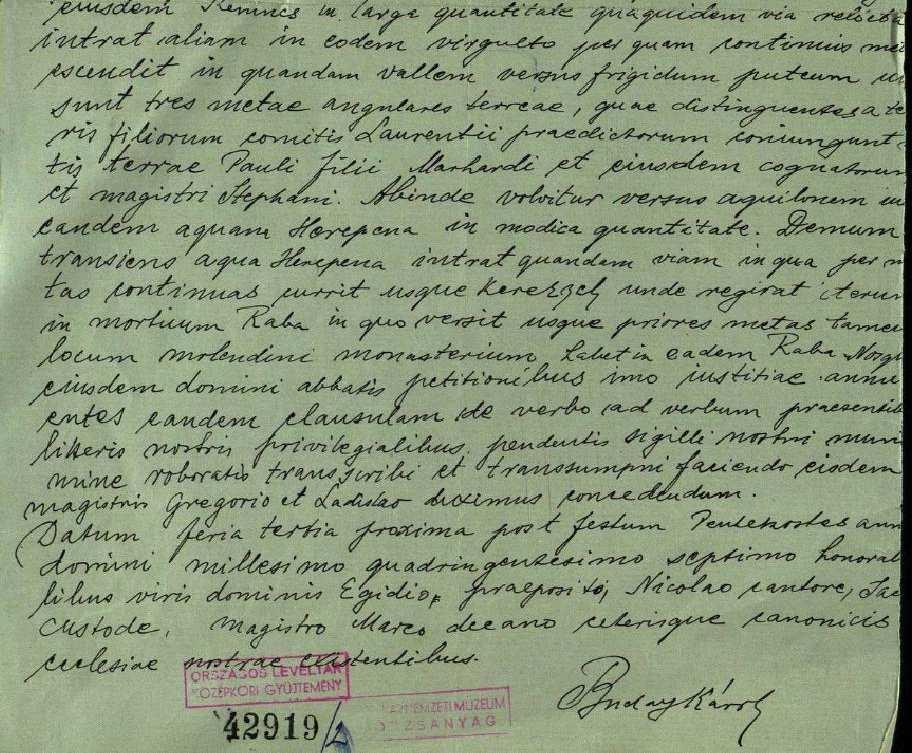 eiusdem Kemnes in larga quantitate quaquidem via relicta
intrat aliam in eodem virgulto per quam continuis met
escendit in quandam vallem versus frigidum puteum u
sunt tres metae angulares terreae, quae distinguentes a te
ris filiorum comitis Laurentii praedictorum coniungunt
tis terrae Pauli filii Marhardi et eiusdem cognatorum
et magistri Stephani. Abinde volvitur versus aquilonem in
eandem aquam Herepena in modica quantitate. Demum
transiens aqua Herepena intrat quandam viam in qua per m
tas continuas currit usque Kerezsch unde regirat iterum
in mortuum Raba in quo versit usque priores metas tamen
locum molendini monasterium habet in eadem Raba Nos
eiusdem domini abbatis petitionibus imo iustitiae annu
entes eandem clausulam de verbo ad verbum praesentib
litteris nostris privilegialibus pendentis sigilli nostri muni
mine roboratis transscribi et transsumpni faciendo eisdem
magistris Gregorio et Ladislao duximus concedendum.
Datum feria tertia proxima post festum Pentekostes ann
domini millesimo quadringentesimo septimo honorab
libus viris dominis Egidio, praeposito, Nicolao cantore, Jac
Custode, magistro Marco decano ceterisque canonicis
ecclesiae nostrae existentibus.
ORSZÁGOS LEVÉLTÁR
KÖZÉPKORI GYŰJTEMÉNY
NEMZETI MÚZEUM
ZSANYAG
42919/2
Buday Károly